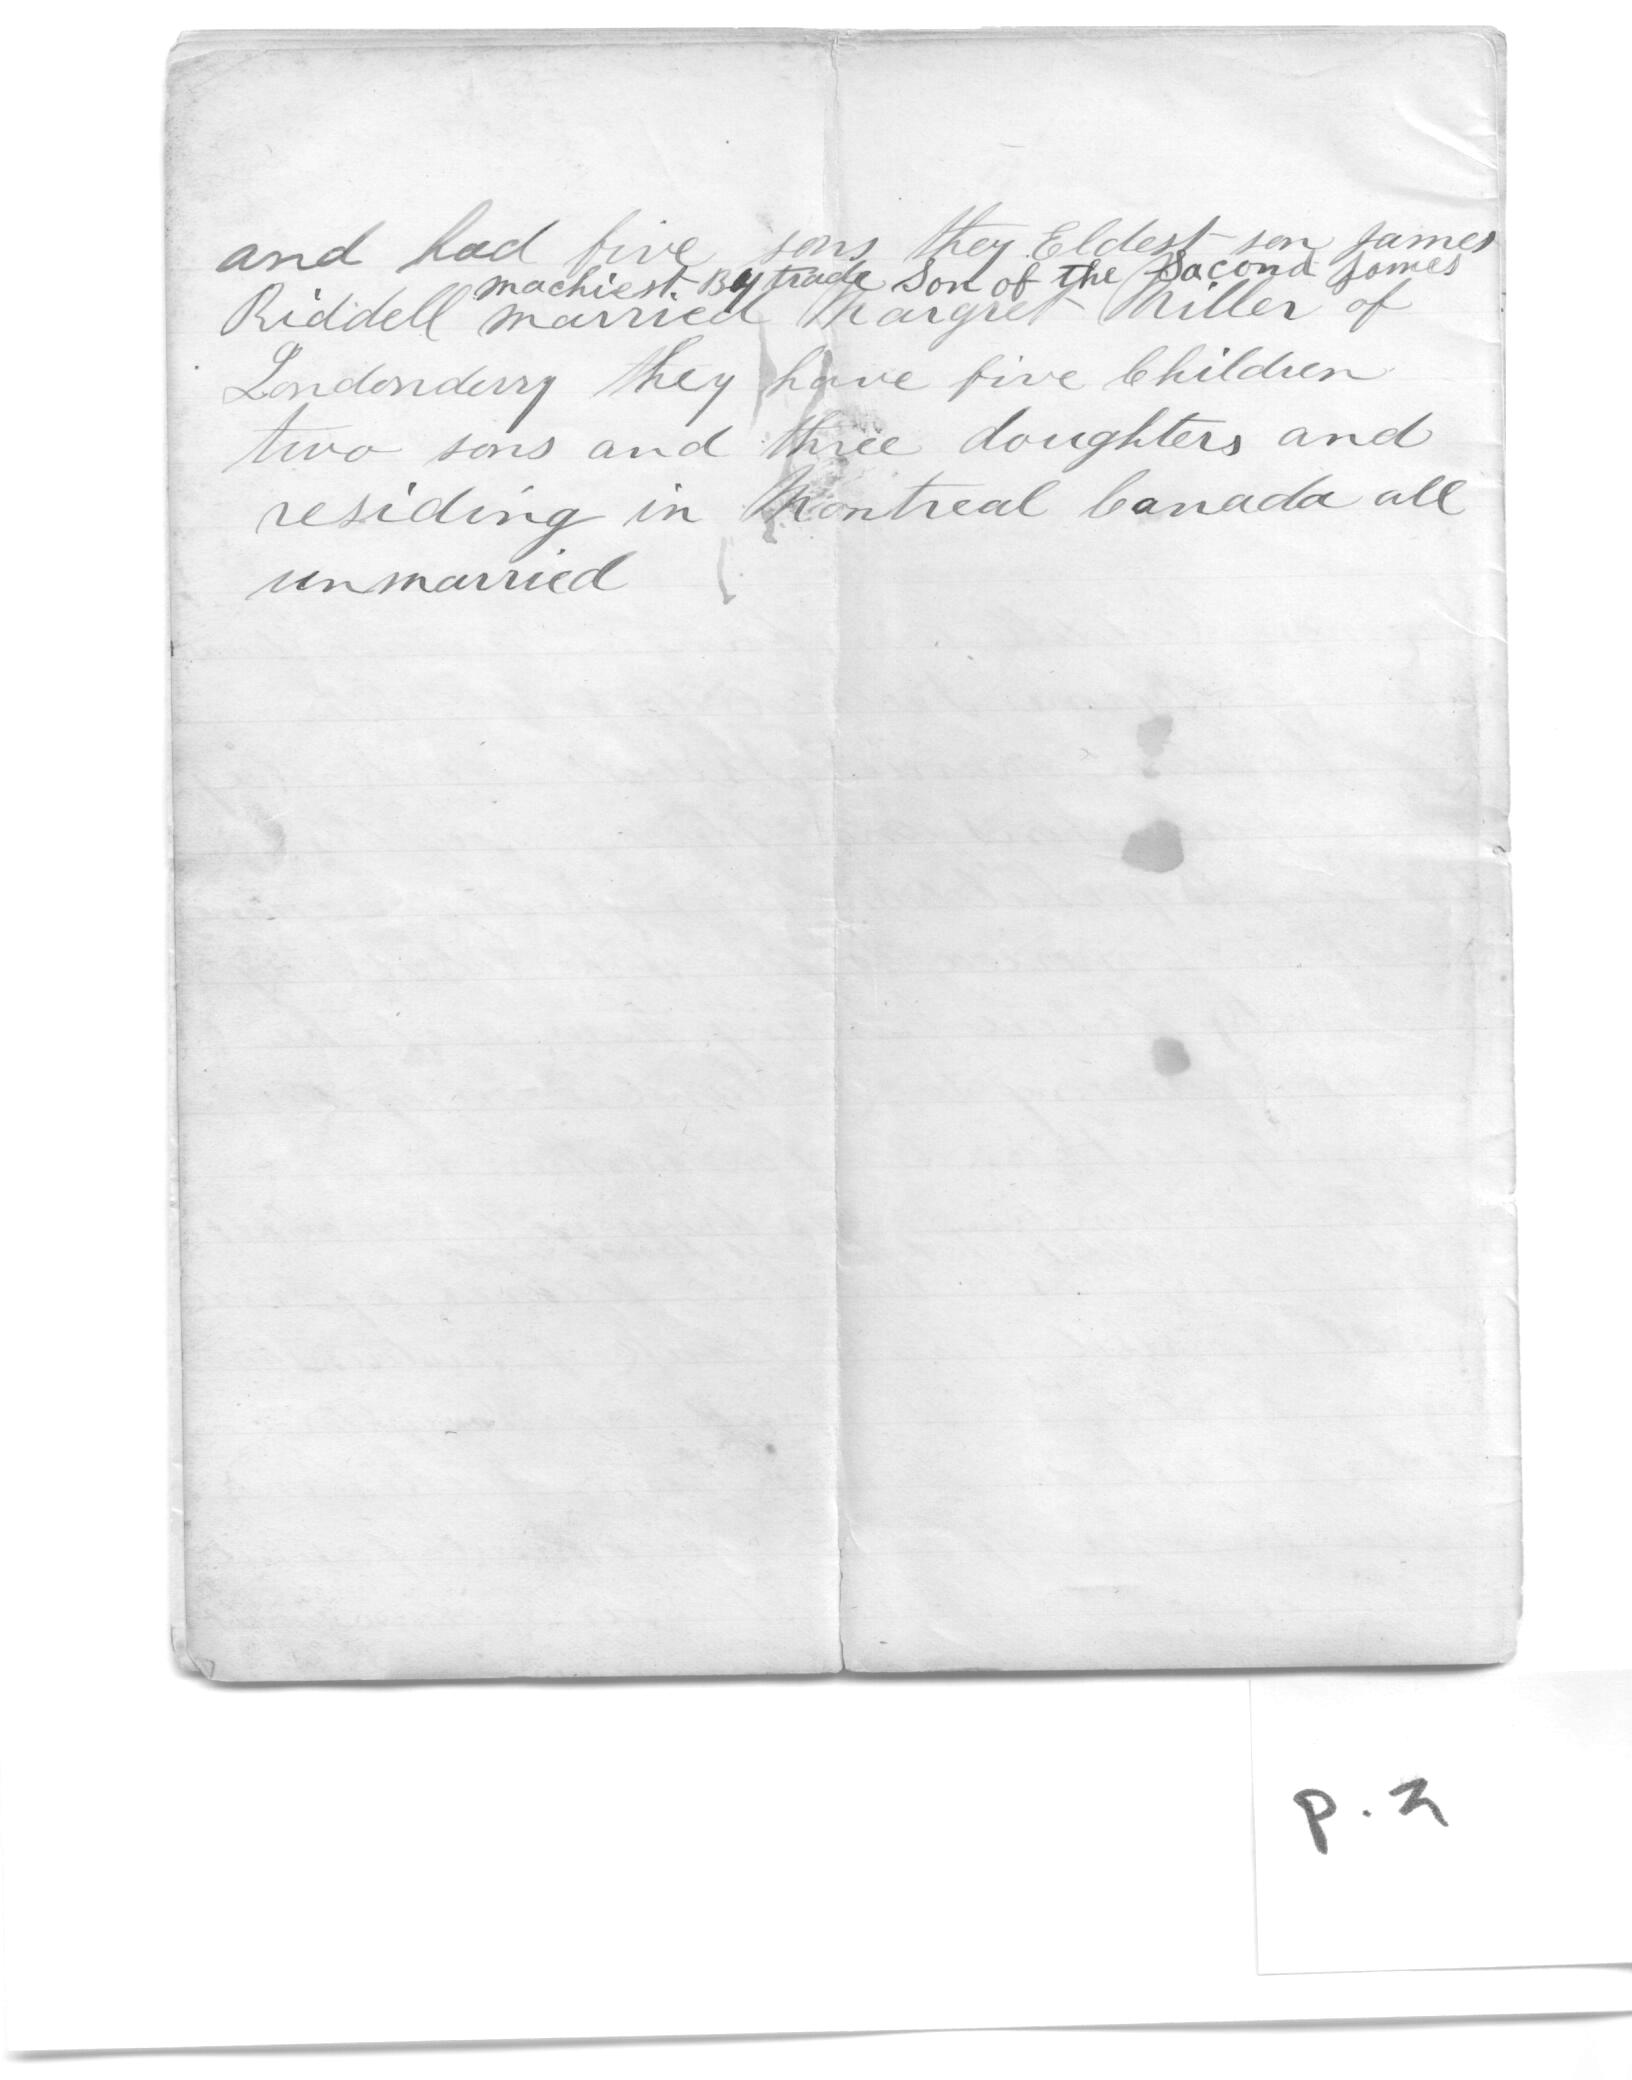 and had five sons they Eldest son James
machiest By trade Son of the Second James
Riddell married Margret Miller of
Londonderry they have five Children
two sons and three doughters and
residing in Montreal Canada all
unmarried
p. 2